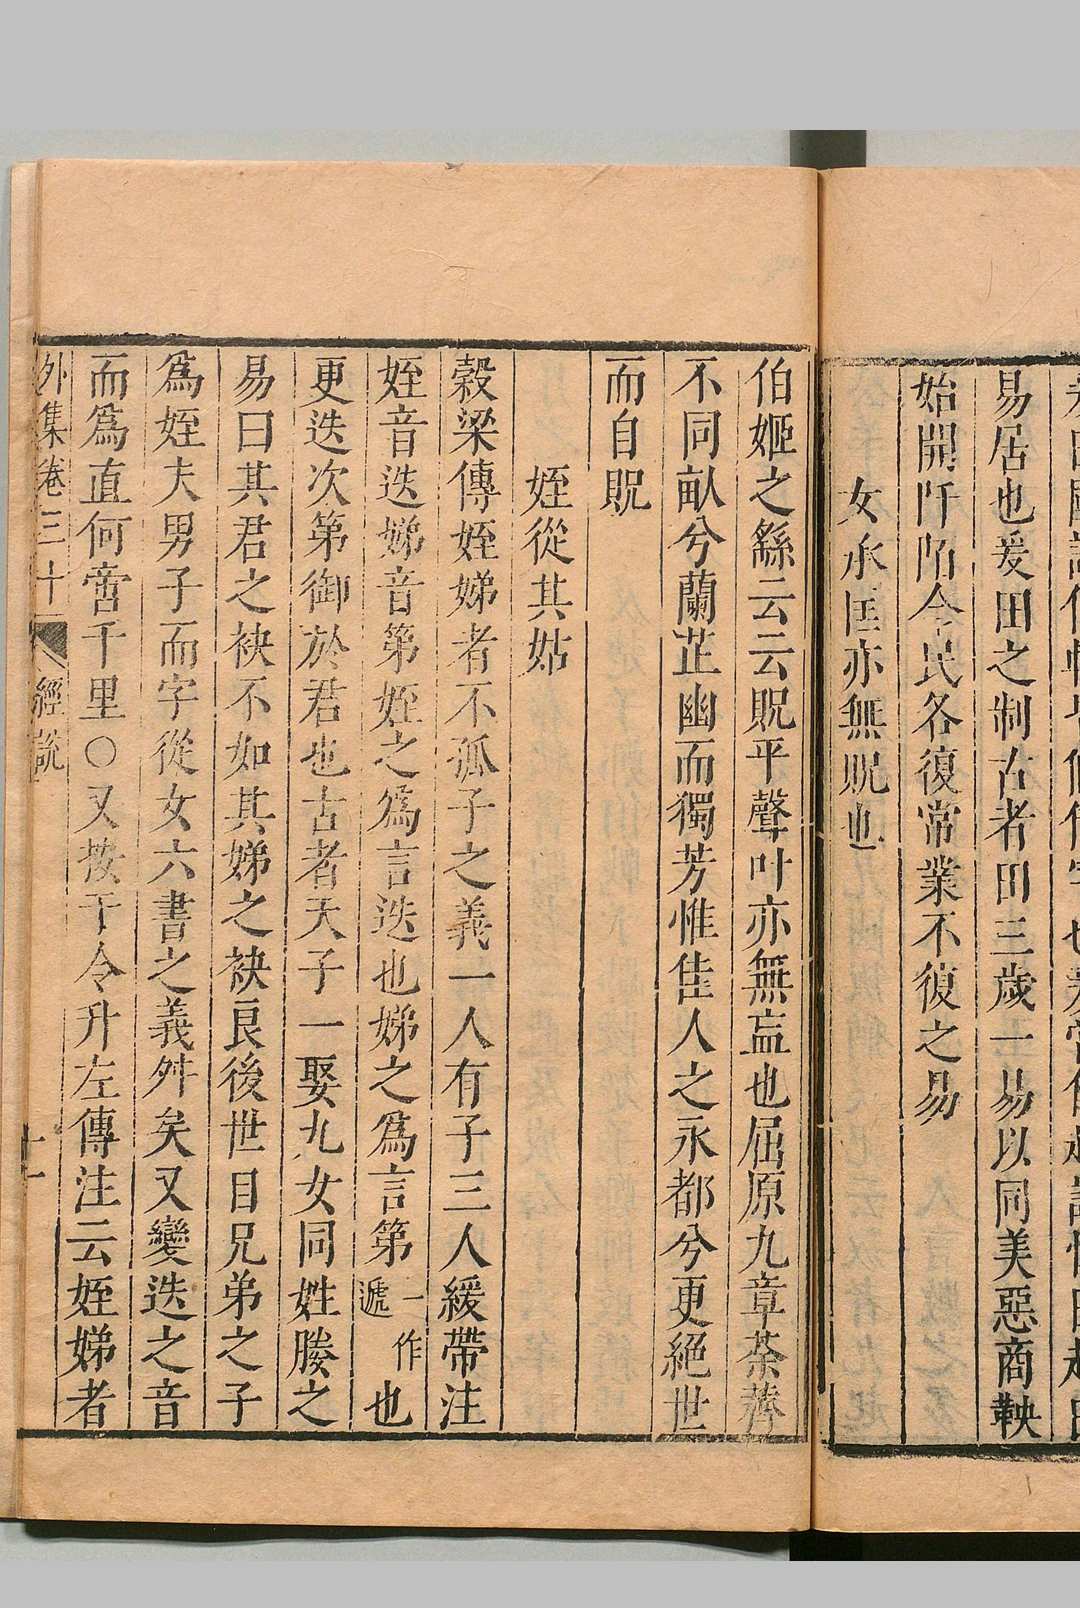 易居也爰田之制古者田三歲一易以同美惡商鞅
始開阡陌令民各復常業不復之易
女承匡亦無貺也
伯姬之繇云云貺平聲叶亦無衁也屈原九章荼薺
不同畝兮蘭芷幽而獨芳惟佳人之永都兮更絕世
而自貺
姪從其姑
穀梁傳姪娣者不孤子之義一人有子三人緩帶注
姪音迭娣音第姪之爲言迭也娣之爲言第一作遞也
更迭次第御於君也古者天子一娶九女同姓媵之
易曰其君之袂不如其娣之袂良後世目兄弟之子
爲姪夫男子而字從女六書之義舛矣又變迭之音
而爲直何啻千里○又按干令升左傳注云姪娣者
外集卷三十 經說 十一